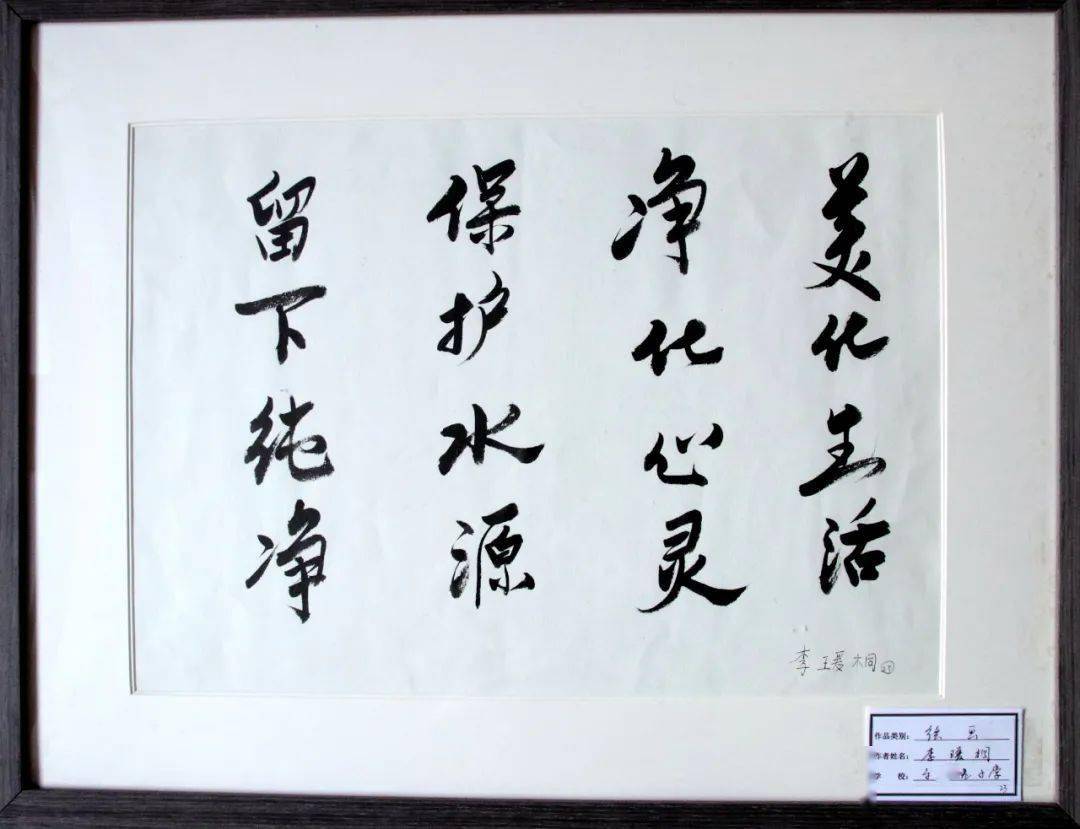 美化生活
净化心灵
保护水源
留下纯净
李瑷桐
作品类别:
作者姓名: 李瑷桐
学 校: 小学
23